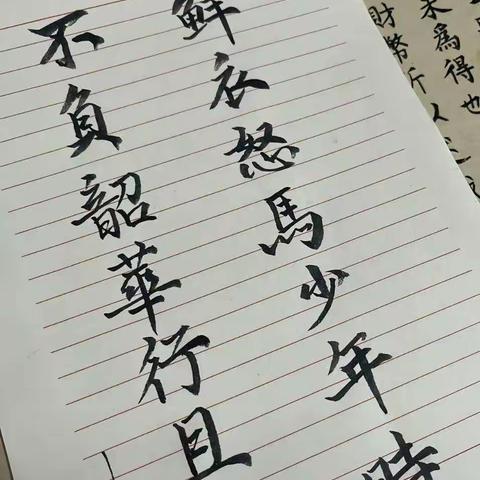 鮮衣怒馬少年時
不負韶華行且
未為得也
財幣斤人之